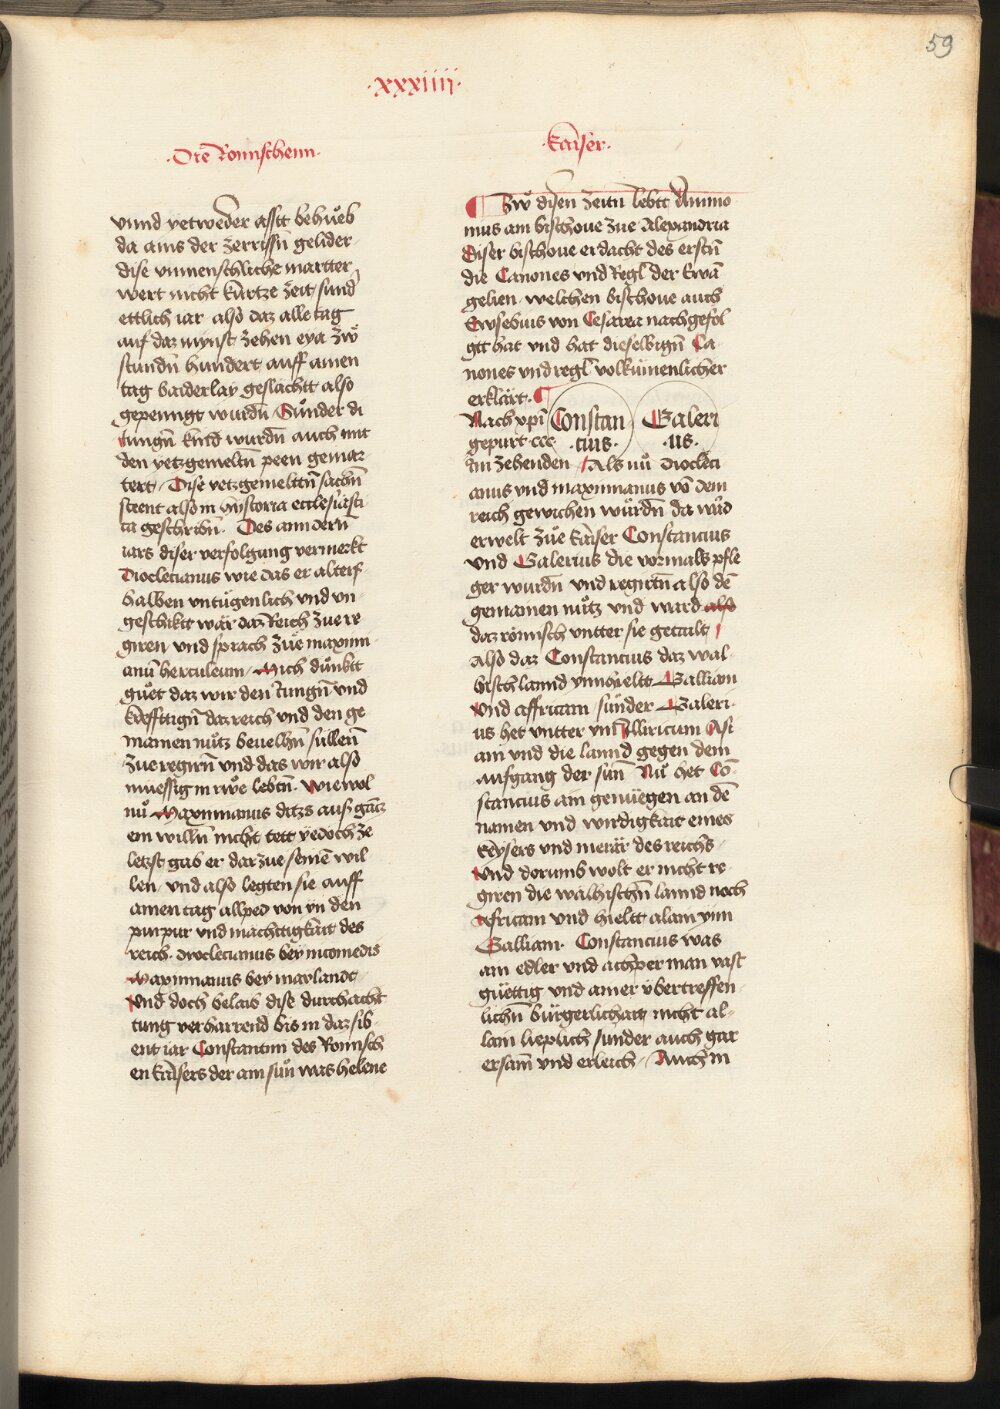 59
·xxxiiii·
·Die Romischenn·
vnnd yetweder asstt behůeb
da ains der zerrissn̄ gelider
dise vnmenschliche martter
wert nicht kurtze zeit sund
ettlich iar also daz alle tag
auf daz mynst zehen eya zwͦ
stundn̄ hundert auff ainen
tag baiderlay geslächtt also
gepeinigt wurdn̄ Sůnder di
iungn̄ kind wurdn̄ auch mit
den yetzgemeltn̄ peen gemar
tert Dise yetzgemelttn̄ sachn̄
steent also in hystoria ecclesiasti
ca geschribn̄. Des anndern
iars diser verfolgung vermerkt
Diocletianus wie das er alters
halben vntügenlich vnd vn
geschikt wär daz Reich zue re
giren vnd sprach zůe maximi
anū herculeum Mich dunktt
gůet daz wir den Iungn̄ vnd
krefftign̄ daz reich vnd den ge
mainen nůtz beuelhn̄ süllenn
zue regirn̄ vnd das wir also
muessig in rwͦe lebtn̄. Wiewol
nů Maximianus ditzs auß gātz
em willn̄ nicht tett yedoch ze
letzst gab er dar zue seinē wil
len vnd also legten sie auff
ainen tag allped von yn den
purpur vnd machttigkait des
reich. Diocletianus bey nicomedis
Maximianus bey maylandt
Vnd doch belaib dise durchächt
tung verharrend bis in daz sib
ent iar Constantini des Romisch
en kaisers der ain sůn was helene
·kaiser·
Zwͦ disen zeitn̄ lebtt Ammo
nius ain bischoue zue Alexandria
Diser bischoue erdacht des erstn̄
die Canones vnd Regl̄ der Ewā
gelien welchen bischoue auch
Ewsebius von Cesarea nachgefol
gtt hat vnd hat dieselbign̄ Ca
nones vnd regl̄ volkümenlicher
erklärt.
Nach xp̄i Constan Galeri
gepurt ccc ·tius· ·us·
im zehenden Als nů Diocleti
anus vnd maximianus vō dem
reich gewichen wurdn̄ da wůd
erwelt zůe kaiser Constancius
vnd Galerius die vormals pfle
ger wurdn̄ vnd regirtn̄ also dē
gemainen nůtz vnd ward also
daz römisch vntter sie getailt
Also daz Constancius daz wal
bisch lannd ynnhieltt Galliam
Vnd affricam sunder Galeri
us het vntter ym Illiricum Asi
am vnd die lannd gegen dem
aufgang der sūn Nů het Cō
stancius ain genüegen an dē
namen vnd wirdigkait eines
keysers vnd merär des reichs
vnd dorumb wolt er nicht re
giren die walhischn̄ lannd noch
Africam vnd hieltt alain ynn
Galliam. Constancius was
ain edler vnd achper man vast
güettig vnd ainer vbertreffen
lichn̄ bürgerlichait nicht al
lain lieplich sunder auch gar
ersam̄ vnd erleich Auch in